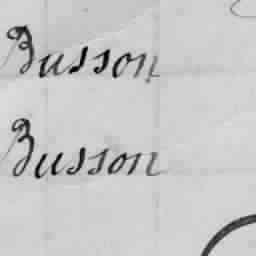 Busson
Busson